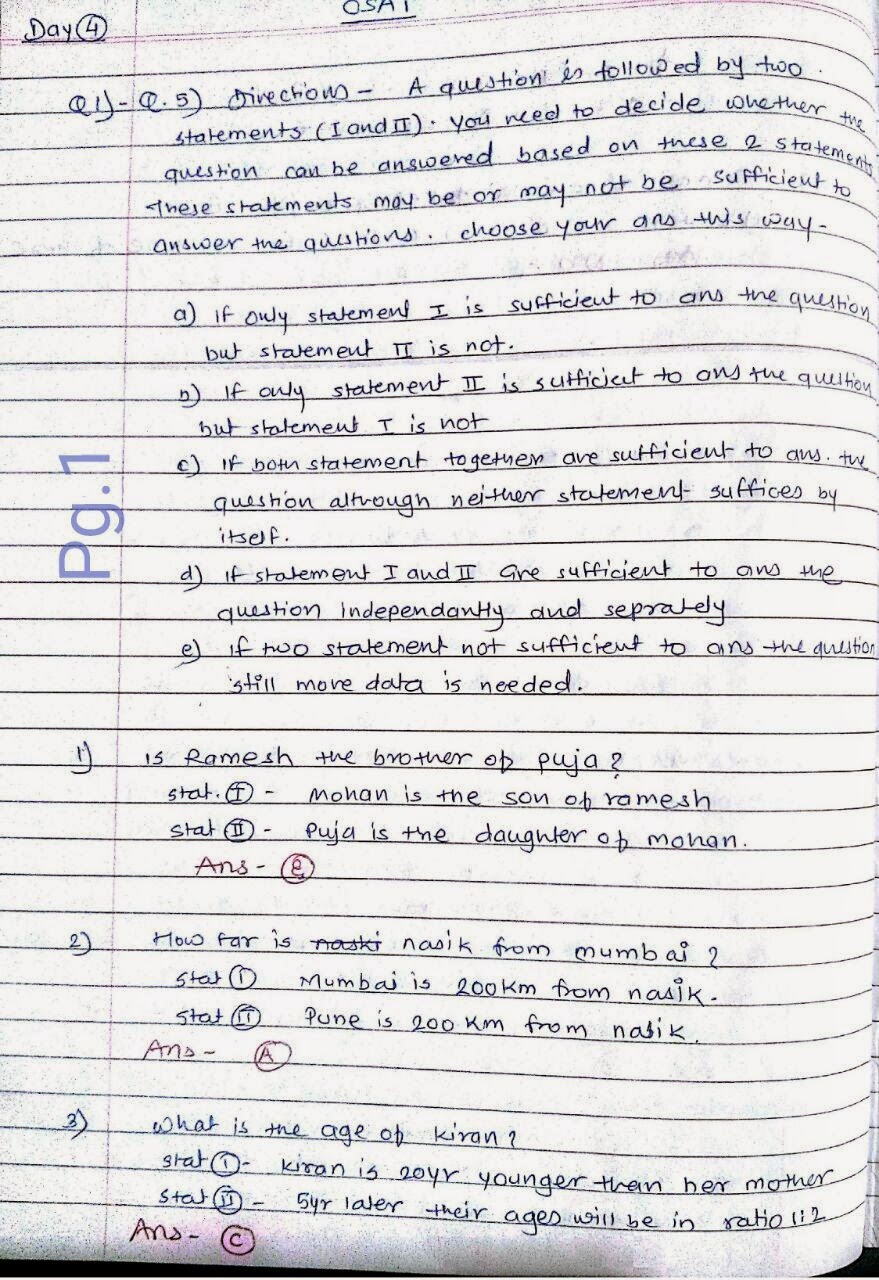 OSAT
Day ④
Q1)-Q.5) Directions - A question is followed by two
statements (I and II). you need to decide whether the
question can be answered based on these 2 statements
These statements may be or may not be sufficient to
answer the questions. choose your ans this way-
a) if only statement I is sufficient to ans the question
but statement II is not.
b) If only statement II is sufficiet to ans the question
but statement I is not
c) if both statement together are sufficient to ans. the
question although neither statement suffices by
itself.
d) if statement I and II are sufficient to ans the
question independantly and seprately
e) if two statement not sufficient to ans the question
still more data is needed.
Pg.1
1) is Ramesh the brother of puja?
stat. Ⓘ - Mohan is the son of ramesh
stat Ⅱ - Puja is the daughter of mohan.
Ans - Ⓔ
2) How far is naski nasik from mumbai ?
stat Ⓘ Mumbai is 200km from nasik.
stat Ⅱ Pune is 200 Km from nasik.
Ans - Ⓐ
3) what is the age of kiran?
stat Ⓘ- kiran is 20yr younger than her mother
stat Ⅱ - 5yr later their ages will be in ratio 1:2
Ans - Ⓒ